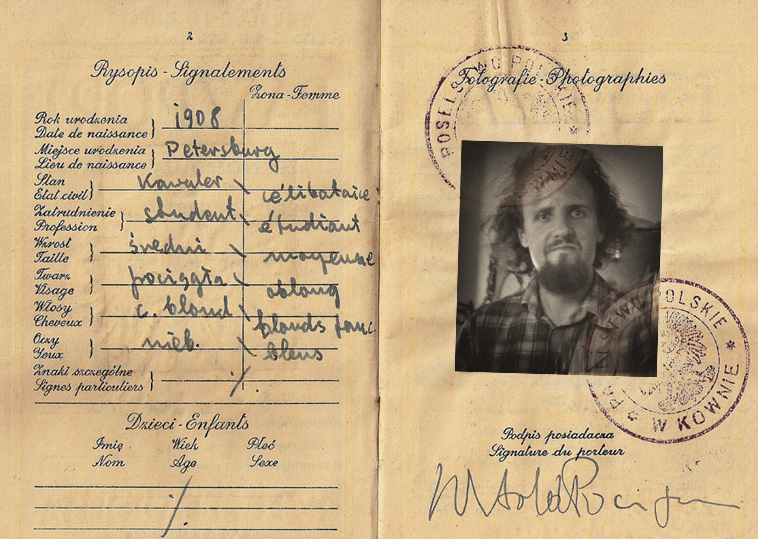 2
Rysopis - Signalements
Żona - Femme
Rok urodzenia
Date de naissance
1908
Miejsce urodzenia
Lieu de naissance
Petersburg
Stan
Etat civil
Kawaler
célibataire
Zatrudnienie
Profession
student
étudiant
Wzrost
Taille
średni
moyenne
Twarz
Visage
pociągła
oblong
Włosy
Cheveux
c. blond
blonds fonc.
Oczy
Yeux
nieb.
bleus
Znaki szczególne
Signes particuliers
Dzieci - Enfants
Imię Wiek Płeć
Nom Age Sexe
3
Fotografie - Photographies
POSELSTWO POLSKIE
POLSKIE
W KOWNIE
Podpis posiadacza
Signature du porteur
Witold